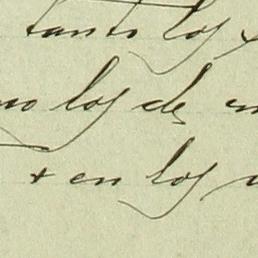 tanto los
no los de
+ en los